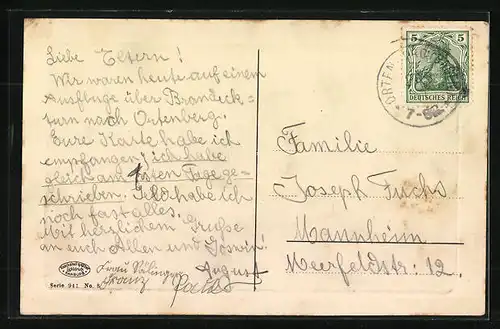 Liebe Eltern!
Wir waren heute auf einem
Ausfluge über Brandeck-
turm nach Ortenberg.
Eure Karte habe ich
empfangen, ich habe
gleich am 1sten Tage ge-
schrieben. Geld habe ich
noch fast alles.
Mit herzlichem Gruße
an euch Allen und Irwin!
August
Frau
Franz
Serie 941 No.
5 5
DEUTSCHES REICH
ORTEN
7-8
Familie
Joseph Fuchs
Mannheim
Meerfeldstr: 12.